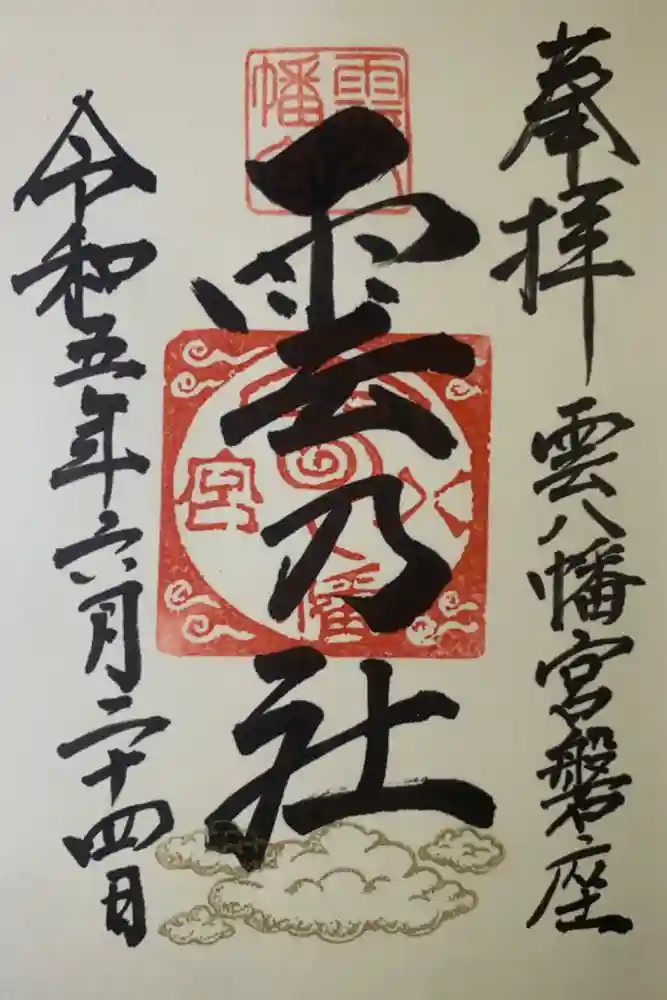 奉拝 雲八幡宮磐座
雲乃社
令和五年六月二十四日
雲
幡
宮
幡